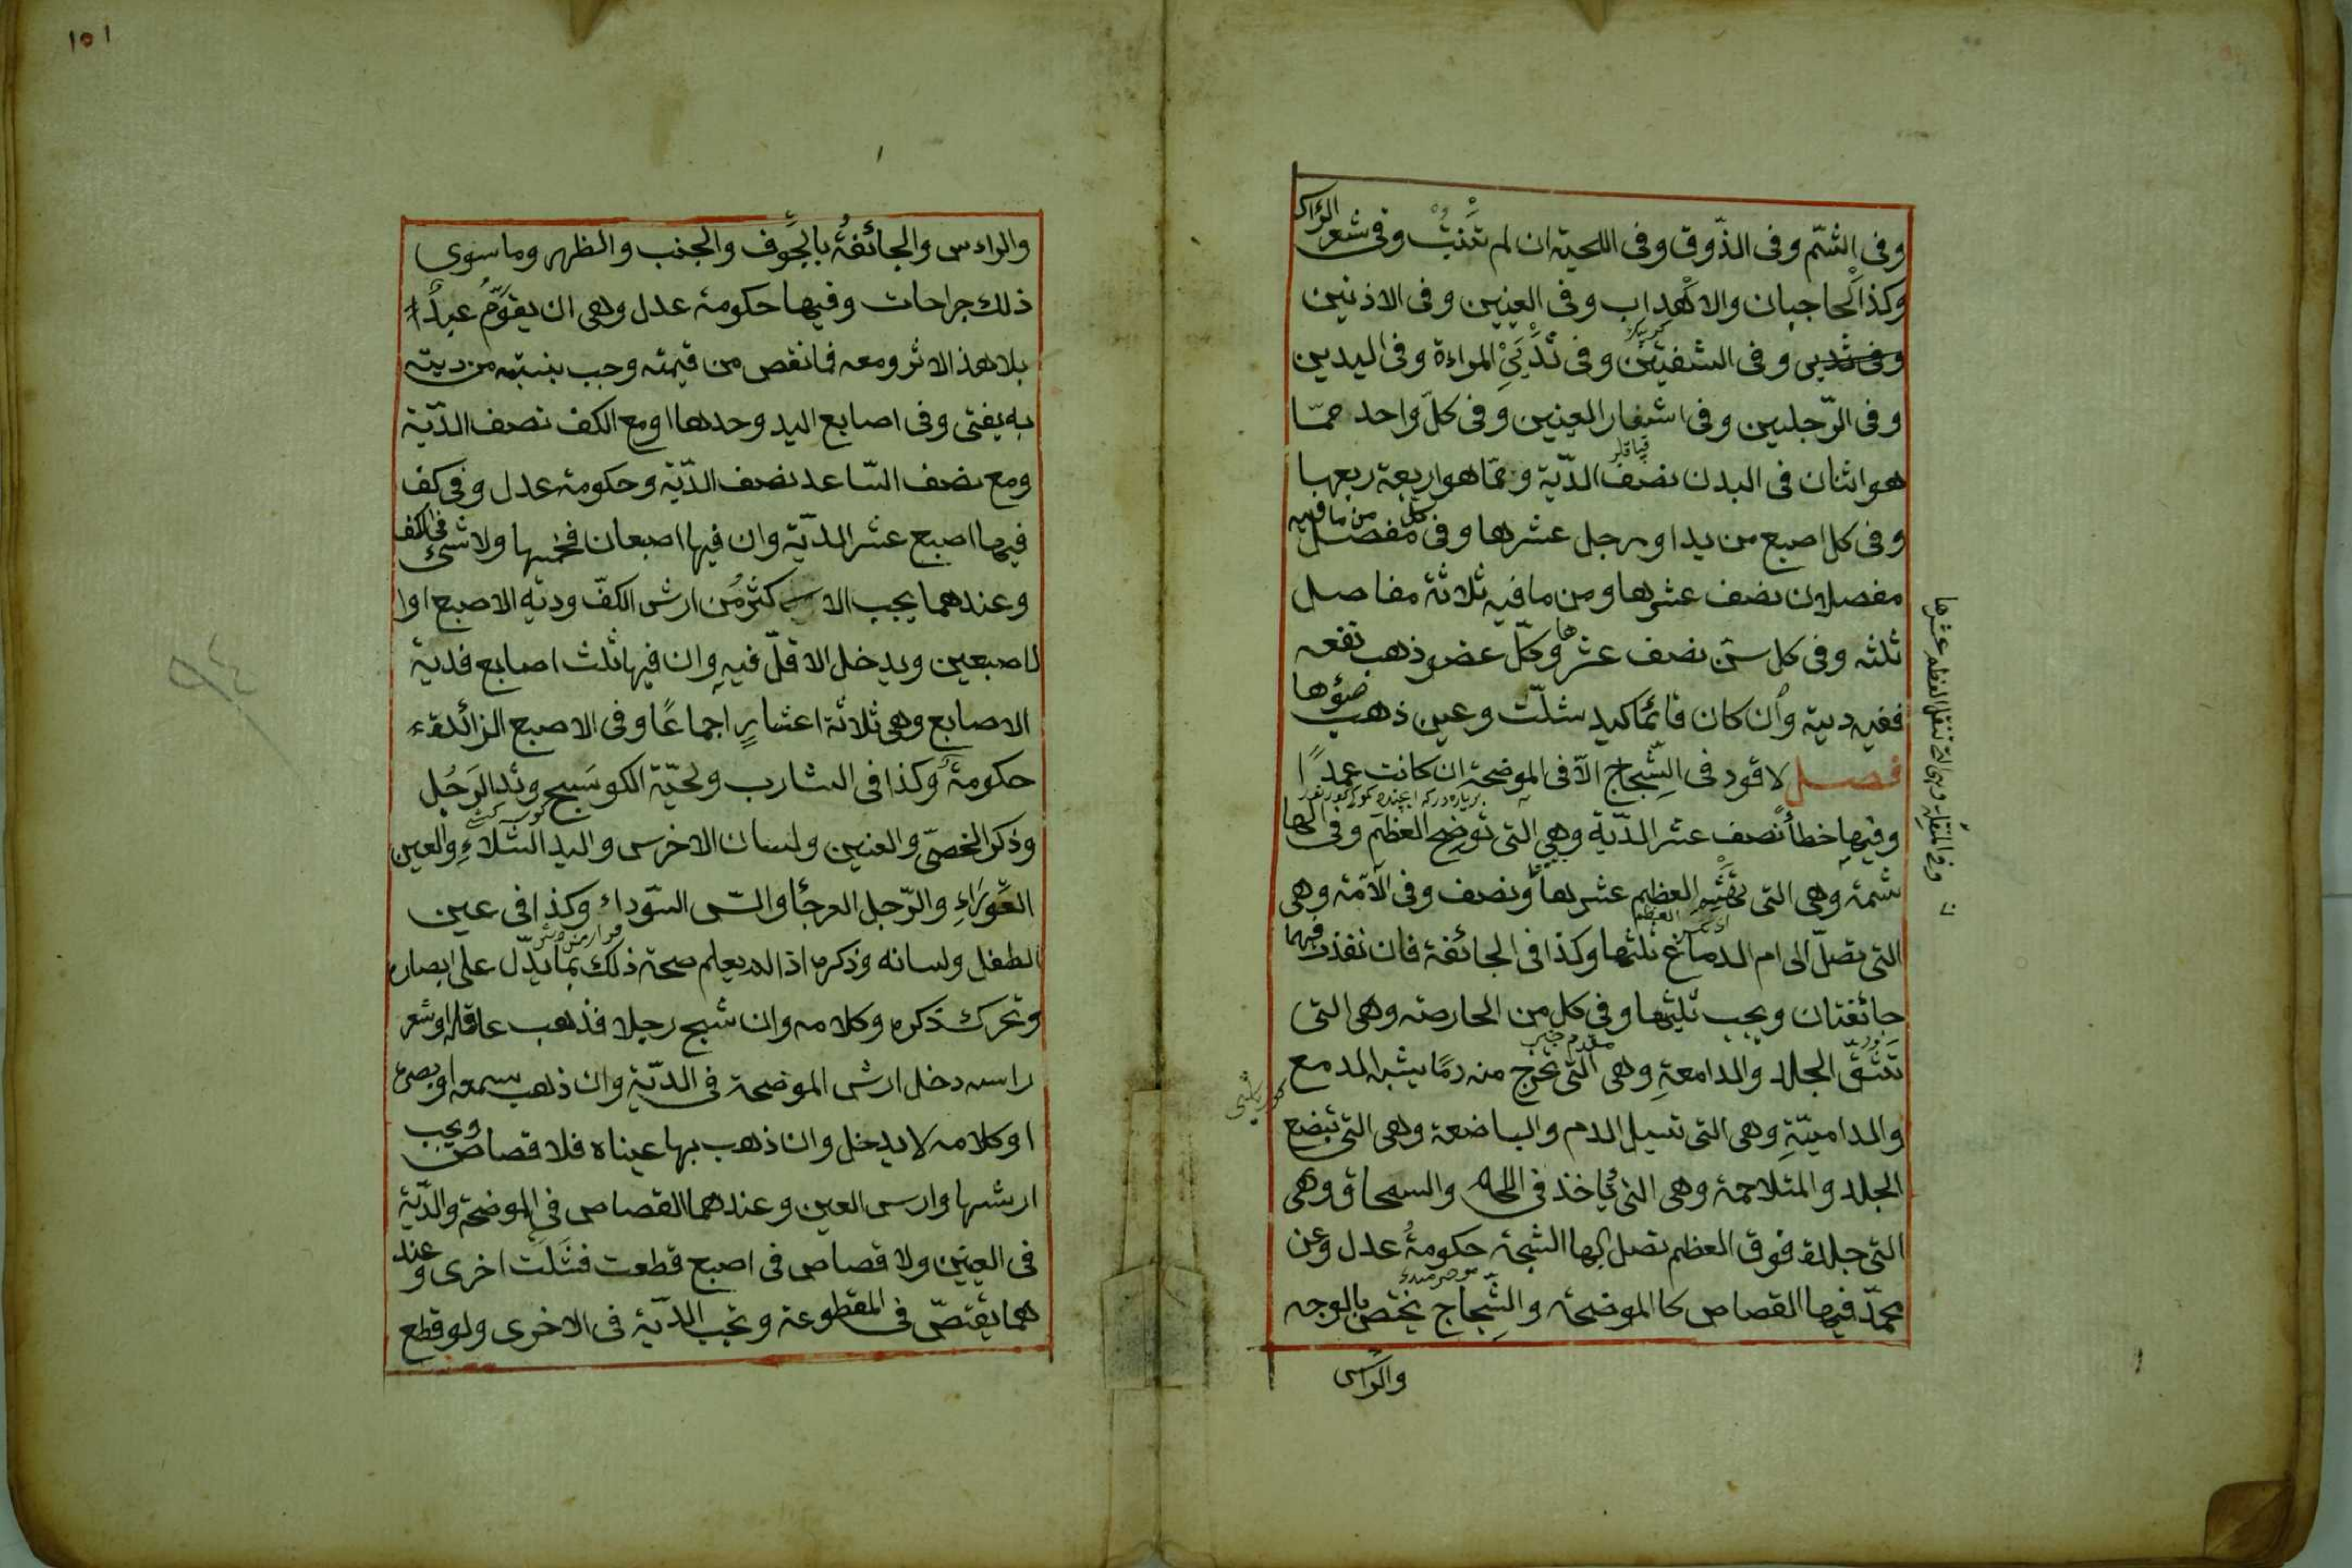 وفى الشّم وفى الذّوق وفى اللحية ان لم تنبت وفى شعر الراس
وكذا الحاجبان والاهداب وفى العينين وفى الاذنين
وفى الشفتين وفى ثديي المراءة وفى اليدين
وفى الرّجلين وفى اشفار العينين وفى كلّ واحد ممّا
هو اثنان فى البدن نصف الدّية وممّا هو اربعة ربعها
وفى كل اصبع من يد او رجل عشرها وفى كل مفصل من ما فيه
مفصلان نصف عشرها ومن ما فيه ثلاثة مفاصل
ثلثه وفى كل سنّ نصف عشرها وكلّ عضو ذهب نفعه
ففيه دية وان كان قائما كيد شلّت وعين ذهب ضوؤها
فصل لا قود فى الشّجاج الاّ فى الموضحة ان كانت عمدًا
وفيها خطأ نصف عشر الدّية وهى التى توضح العظم وفى الها
شمة وهى التى تهشم العظم عشرها ونصف وفى الآمّة وهى
التى تصلّ الى ام الدماغ ثلثها وكذا فى الجائفة فان نفذت فهما
جائفتان ويجب ثلثها وفى كل من الحارصة وهى التى
تشقّ الجلد والدامعة وهى التى تخرج منه دمًا يشبه الدمع
والداميّة وهى التى تسيل الدم والباضعة وهى التى تبضع
الجلد والمتلاحمة وهى التى تاخذ فى اللحم والسمحاق وهى
التى جلدة فوق العظم تصل اليها الشجة حكومة عدل وعن
محمّد فيها القصاص كا الموضحة والشّجاج يختصّ بالوجه
والراس
وفى المنقلة وهى التى تنقل العظم عشرها
١٥١
والراس والجائفة بالجوف والجنب والظهر وما سوى
ذلك جراحات وفيها حكومة عدل وهى ان يقوّم عبدًا
بلا هذ الاثر ومعه فما نقص من قيمته وجب بنسبته من ديته
به يفتى وفى اصابع اليد وحدها او مع الكف نصف الدّية
ومع نصف السّاعد نصف الدّية وحكومة عدل وفى كف
فيها اصبع عشر الدّية وان فيها اصبعان فخمسها ولا شئ فى الكف
وعندهما يجب الاكثر من ارش الكفّ ودية الاصبع اوا
لاصبعين ويدخل الاقلّ فيه وان فيها ثلث اصابع فدية
الاصابع وهى ثلاثة اعشار اجماعًا وفى الاصبع الزائدة
حكومة وكذا فى الشارب ولحيّة الكوسج وثدى الرّجل
وذكر الخصىّ والعنين ولسان الاخرس واليد الشّلاء والعين
العوراء والرّجل العرجا والسّن السّوداء وكذا فى عين
الطفل ولسانه وذكره اذا لم يعلم صحة ذلك بما يدّل على ابصاره
وتحرك ذكره وكلامه وان شج رجلا فذهب عاقله او شعر
راسه دخل ارش الموضحة فى الدّية وان ذهب سمعه او بصره
او كلامه لا يدخل وان ذهب بها عيناه فلا قصاص ويجب
ارشها وارس العين وعندهما القصاص فى الموضحة والدّية
فى العينين ولا قصاص فى اصبع قطعت فشلّت اخرى وعند
هما يقتصّ فى المقطوعة وتجب الدّية فى الاخرى ولو قطع